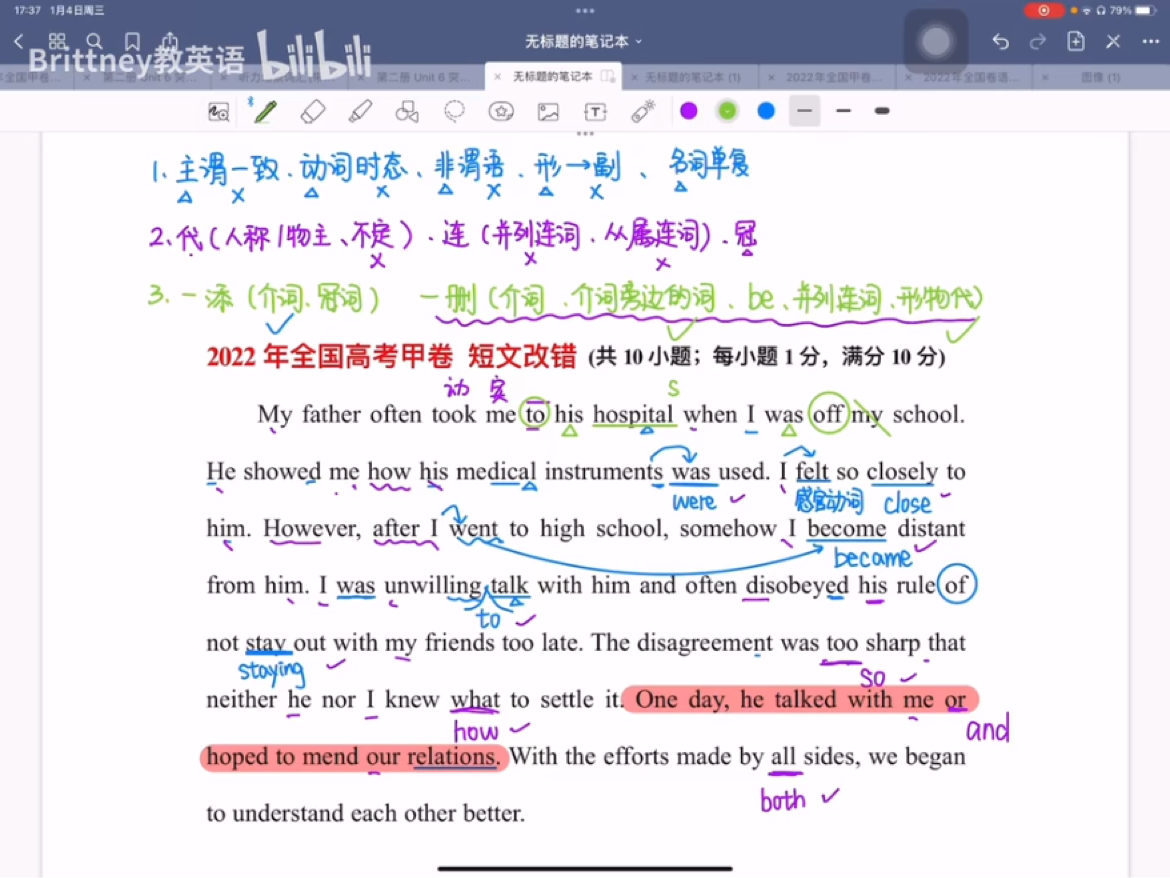 17:37 1月4日周三
79%
无标题的笔记本
Brittney教英语 bilibili
第二册 Unit 6 突...
第二册 Unit 6 突...
无标题的笔记本
无标题的笔记本 (1)
2022年全国甲卷...
2022年全国卷语...
图像 (1)
1. 主谓一致、动词时态、非谓语、形→副、名词单复
2. 代(人称/物主、不定)、连(并列连词、从属连词)、冠
3. 一添(介词、冠词) 一删(介词、介词旁边的词、be、并列连词、形物代)
2022 年全国高考甲卷 短文改错 (共 10 小题；每小题 1 分，满分 10 分)
动 宾 s
My father often took me to his hospital when I was off my school.
He showed me how his medical instruments was used. I felt so closely to
were 感官动词 close
him. However, after I went to high school, somehow I become distant
became
from him. I was unwilling talk with him and often disobeyed his rule of
to
not stay out with my friends too late. The disagreement was too sharp that
staying so
neither he nor I knew what to settle it. One day, he talked with me or
how and
hoped to mend our relations. With the efforts made by all sides, we began
both
to understand each other better.